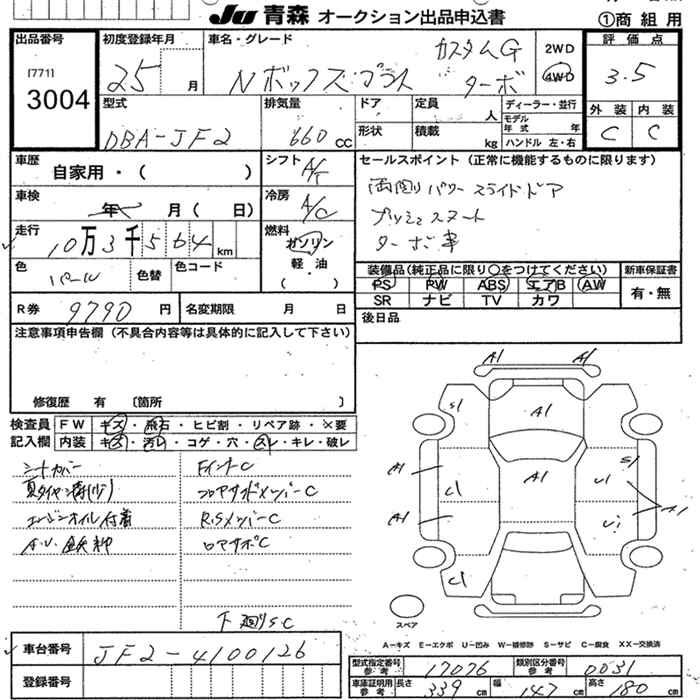 JU 青森 オークション出品申込書
①商組用
出品番号
[771]
3004
初度登録年月
25 月
車名・グレード
カスタムG
Nボックスプラス ターボ
2WD
4WD
評価点
3.5
外装 内装
C C
型式
DBA-JF2
排気量
660 cc
ドア
形状
定員 人
積載 kg
ディーラー・並行
モデル年式 年
ハンドル 左・右
車歴
自家用・( )
シフト A/T
車検
年 月 ( 日)
冷房 A/C
走行
10万3千564 km
燃料
ガソリン
軽・油
( )
色
パール
色替
色コード
R券 9790 円
名変期限 月 日
セールスポイント (正常に機能するものに限ります)
両側パワースライドドア
プッシュスタート
ターボ車
装備品(純正品に限り○をつけてください)
PS PW ABS エアB AW
SR ナビ TV カワ
新車保証書
有・無
後日品
注意事項申告欄 (不具合内容等は具体的に記入して下さい)
修復歴 有 〔箇所 〕
検査員記入欄
FW キズ・飛石・ヒビ割・リペア跡・×要
内装 キズ・汚レ・コゲ・穴・スレ・キレ・破レ
シートカバー
夏タイヤ溝(少)
エンジンオイル付着
フロアサポメンバーC
R.SメンバーC
ロアサポC
下廻りSC
A1 A1
S1 A1
A1 A1 S1
C1 U1
A1 A1
C1
スペア
A=キズ E=エクボ U=凹み W=補修跡 S=サビ C=腐食 XX=交換済
車台番号 JF2-4100126
登録番号
型式指定番号 参考 17076
類別区分番号 参考 0031
車庫証明用 参考 長さ 339 cm 幅 147 cm 高さ 180 cm